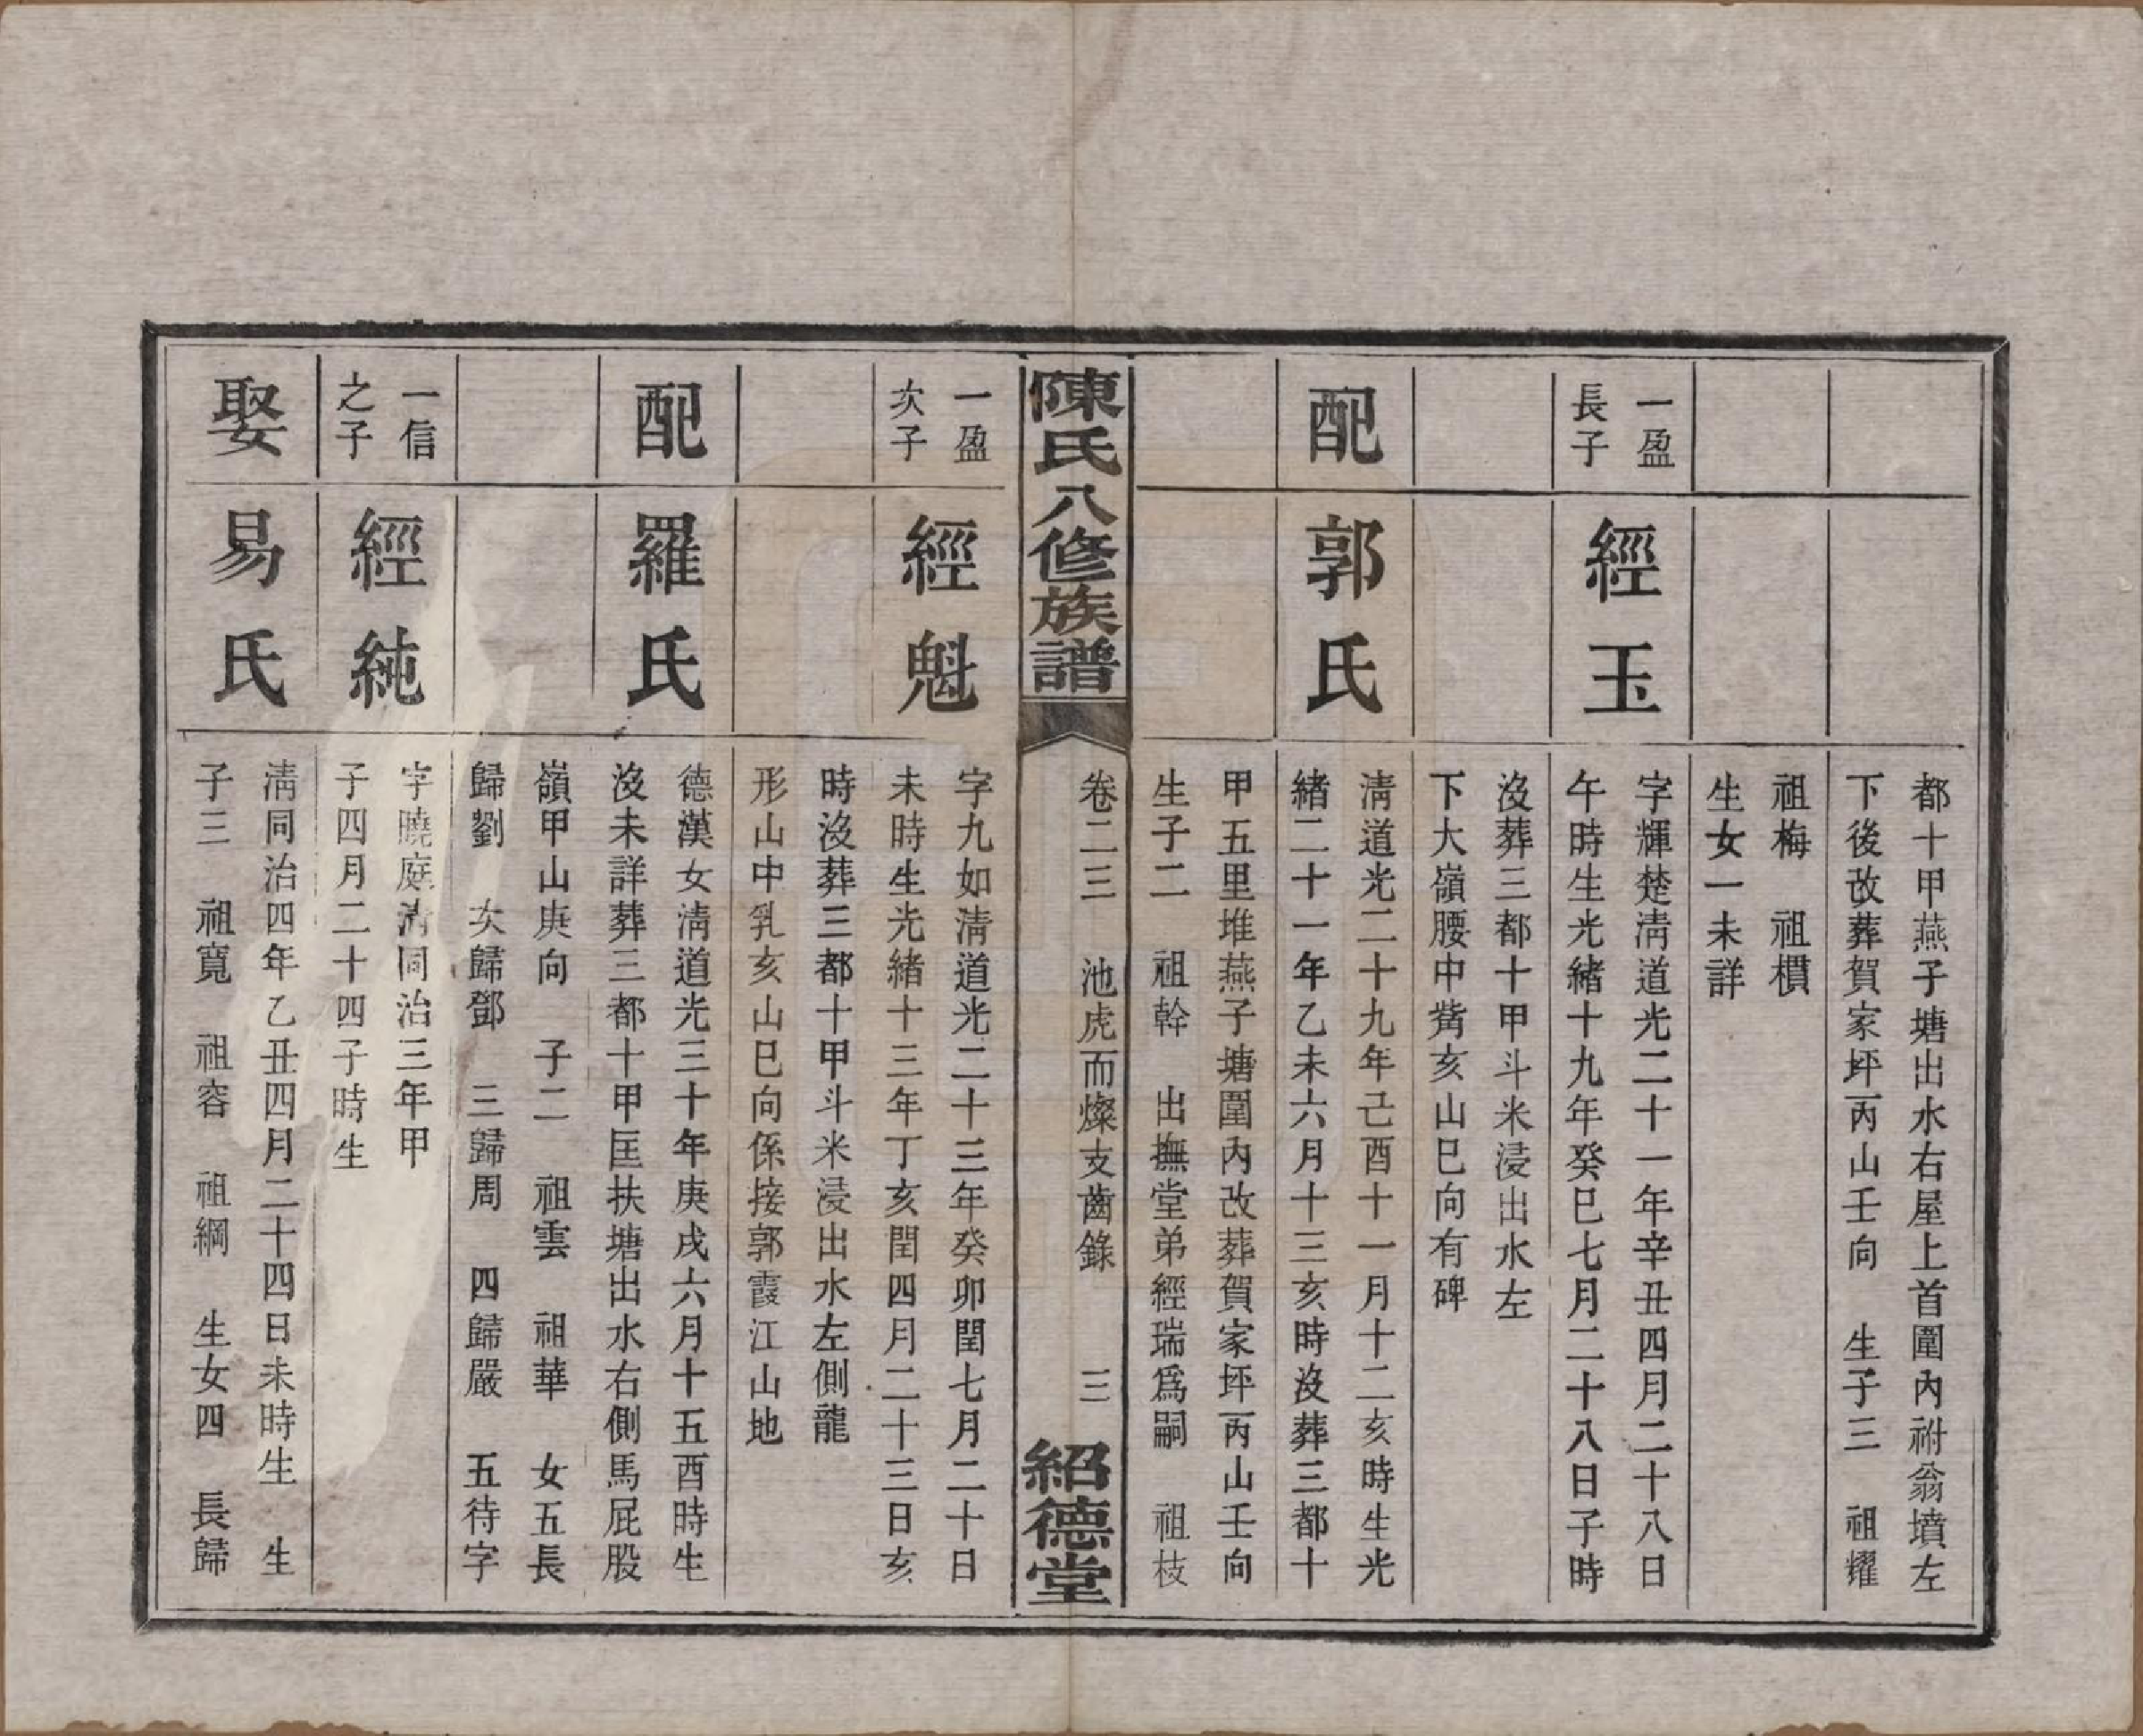 都十甲燕子塘出水右屋上首圍內祔翁墳左
下後改葬賀家坪丙山壬向　生子三　祖耀
祖梅　祖樌
生女一未詳
一盈
長子
經玉
字輝楚淸道光二十一年辛丑四月二十八日
午時生光緒十九年癸巳七月二十八日子時
沒葬三都十甲斗米浸出水左
下大嶺腰中觜亥山巳向有碑
配
郭氏
淸道光二十九年己酉十一月十二亥時生光
緒二十一年乙未六月十三亥時沒葬三都十
甲五里堆燕子塘圍內改葬賀家坪丙山壬向
生子二　祖幹　出撫堂弟經瑞爲嗣　祖枝
陳氏八修族譜
卷二三　池虎而燦支齒錄　三
紹德堂
一盈
次子
經魁
字九如淸道光二十三年癸卯閏七月二十日
未時生光緒十三年丁亥閏四月二十三日亥
時沒葬三都十甲斗米浸出水左側龍
形山中乳亥山巳向係接郭霞江山地
配
羅氏
德漢女淸道光三十年庚戌六月十五酉時生
沒未詳葬三都十甲匡扶塘出水右側馬屁股
嶺甲山庚向　子二　祖雲　祖華　女五長
歸劉　次歸鄧　三歸周　四歸嚴　五待字
一信
之子
經純
字曉庭淸同治三年甲
子四月二十四子時生
娶
易氏
淸同治四年乙丑四月二十四日未時生　生
子三　祖寬　祖容　祖綱　生女四　長歸